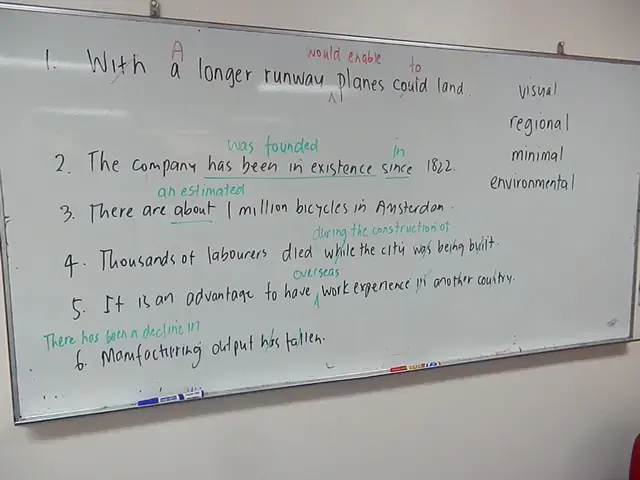 A would enable to
1. With a longer runway planes could land.
visual
regional
was founded in
minimal
2. The company has been in existence since 1822.
environmental
an estimated
3. There are about 1 million bicycles in Amsterdam.
during the construction of
4. Thousands of labourers died while the city was being built.
overseas
5. It is an advantage to have work experience in another country.
There has been a decline in
6. Manufacturing output has fallen.